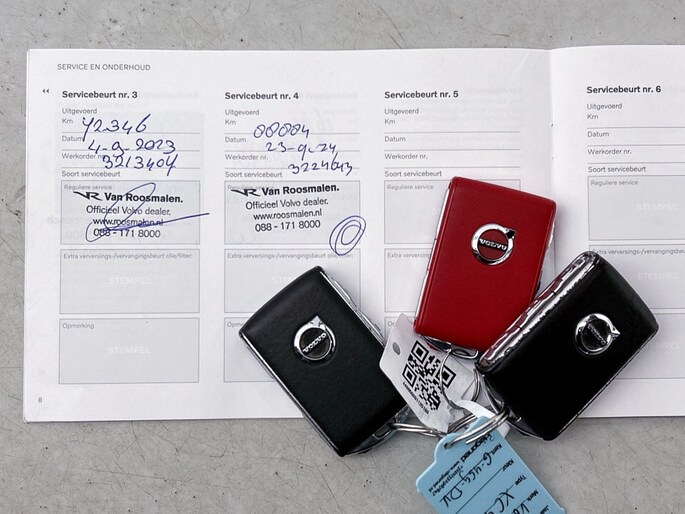 SERVICE EN ONDERHOUD
Servicebeurt nr. 3
Uitgevoerd
Km
Datum 4-9-2023
Werkorder nr. 3213404
Soort servicebeurt
Reguliere service
VR Van Roosmalen.
Officieel Volvo dealer.
www.roosmalen.nl
088 - 171 8000
Extra verversings-/vervangingsbeurt olie/filter:
STEMPEL
Opmerking
STEMPEL
8
Servicebeurt nr. 4
Uitgevoerd
Km
Datum 23-9-24
Werkorder nr.
Soort servicebeurt
Reguliere service
VR Van Roosmalen.
Officieel Volvo dealer.
www.roosmalen.nl
088 - 171 8000
Extra verversings-/vervangingsbeurt olie/filter:
STEMPEL
Opmerking
Servicebeurt nr. 5
Uitgevoerd
Km
Datum
Werkorder nr.
Soort servicebeurt
Reguliere service
Servicebeurt nr. 6
Uitgevoerd
Km
Datum
Werkorder nr.
Soort servicebeurt
Reguliere service
VOLVO
VOLVO
VOLVO
Kent.
Kleur
Merk
Type